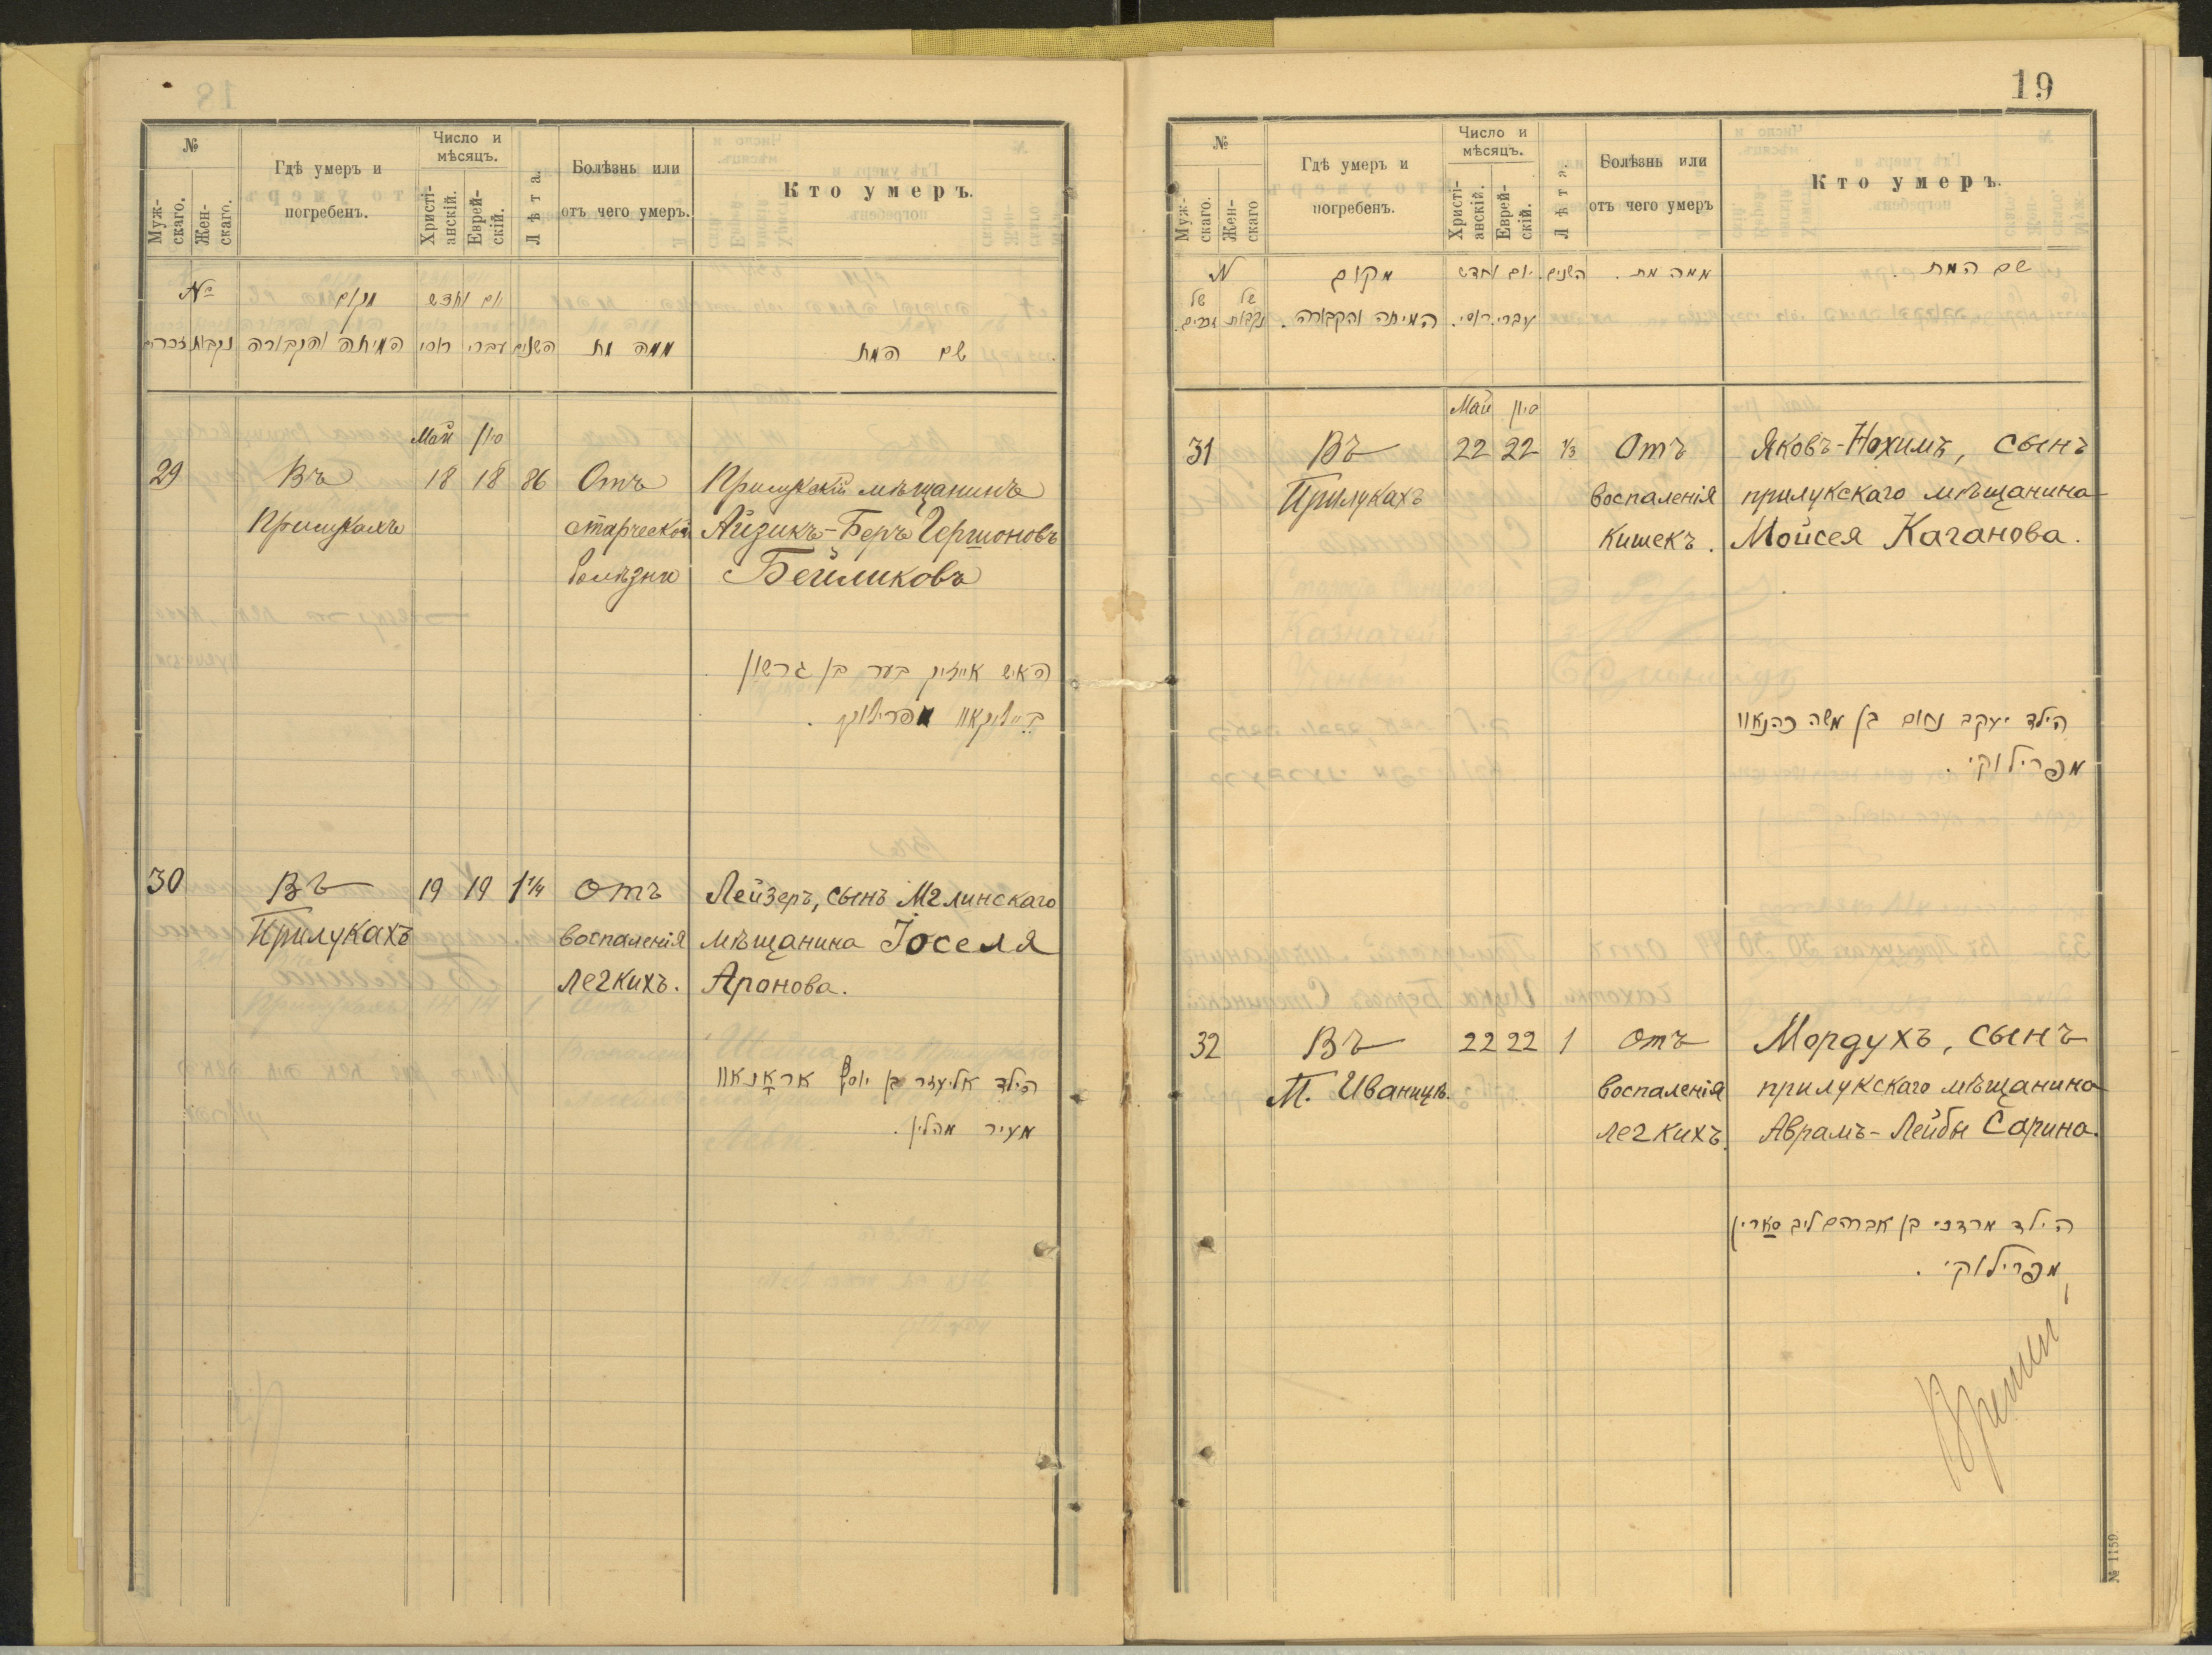 №
Муж-
скаго.
Жен-
скаго.
Гдѣ умеръ и
погребенъ.
Число и
мѣсяцъ.
Христі-
анскій.
Еврей-
скій.
Лѣта.
Болѣзнь или
отъ чего умеръ.
Кто умеръ.
№ מקום יום וחדש
זכרים נקבות המיתה והקבורה רוסי עברי השנים ממה מת שם המת
Май סיון
29 Въ 18 18 86 Отъ Прилукскій мѣщанинъ
Прилукахъ старческой Айзикъ-Беръ Гершоновъ
болѣзни Бейликовъ
האיש אייזיק בער בן גרשון
בייליקאוו מפרילוקי.
30 Въ 19 19 1 1/4 Отъ Лейзеръ, сынъ Мглинскаго
Прилукахъ воспаленія мѣщанина Іоселя
легкихъ. Аронова.
הילד אליעזר בן יוסף אראנאוו
מעיר מהלין.
19
№
Муж-
скаго.
Жен-
скаго
Гдѣ умеръ и
погребенъ.
Число и
мѣсяцъ.
Христі-
анскій.
Еврей-
скій.
Лѣта.
Болѣзнь или
отъ чего умеръ
Кто умеръ.
N מקום יום וחדש השנים. ממה מת. שם המת.
של זכרים. של נקבות המיתה והקבורה. רוסי. עברי
Май סיון
31 Въ 22 22 1/3 Отъ Яковъ-Нохимъ, сынъ
Прилукахъ воспаленія прилукскаго мѣщанина
кишекъ. Мойсея Каганова.
הילד יעקב נחום בן משה כהנאוו
מפרילוקי.
32 Въ 22 22 1 Отъ Мордухъ, сынъ
М. Иваницѣ. воспаленія прилукскаго мѣщанина
легкихъ. Аврамъ-Лейбы Сарина.
הילד מרדכי בן אברהם ליב סארין
מפרילוקי.
№ 1159